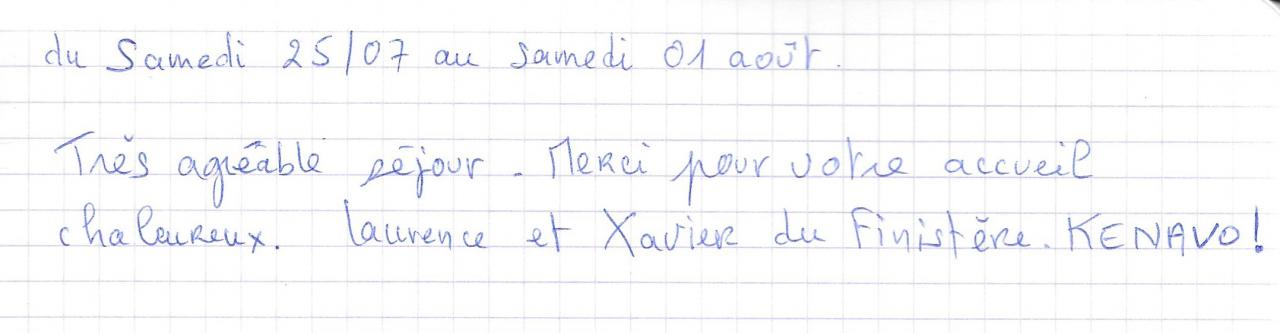 du Samedi 25/07 au samedi 01 août.
Très agréable séjour. Merci pour votre accueil
chaleureux. Laurence et Xavier du Finistère. KENAVO!